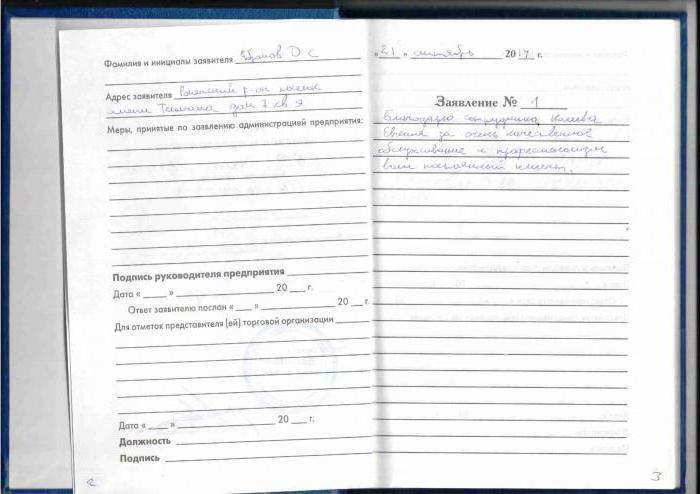 Фамилия и инициалы заявителя Д С
Адрес заявителя р-он поселок
имени Тельмана дом 7 кв 9
Меры, принятые по заявлению администрацией предприятия:
Подпись руководителя предприятия
Дата « » 20 г.
Ответ заявителю послан « » 20 г.
Для отметок представителя (ей) торговой организации
Дата « » 20 г.
Должность
Подпись
2
„21„ сентябрь 2017 г.
Заявление № 1
Благодарю сотрудника
Евгения за очень качественное
обслуживание и профессионализм
ваш постоянный клиент.
3